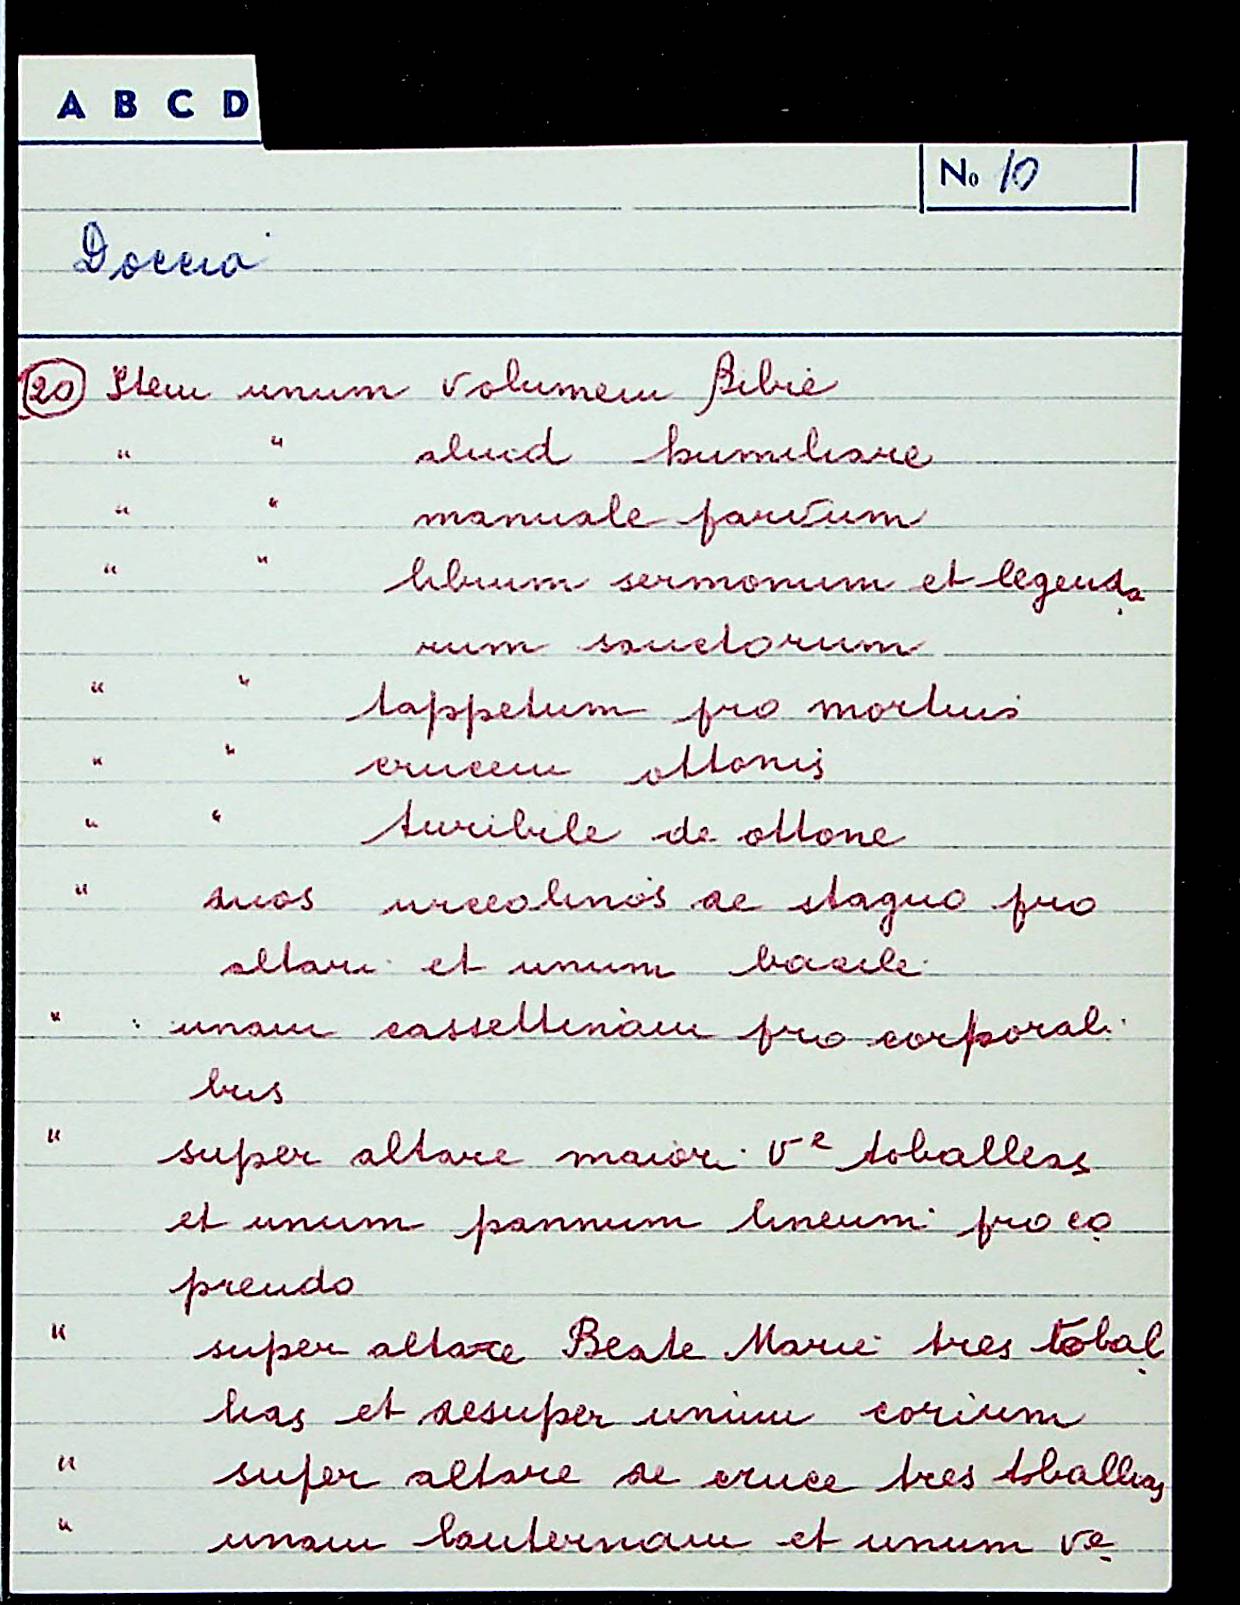 A B C D
No 10
Doccia
20 Item unum volumem Bibie
" " aliud humiliare
" " manuale parvum
" " librum sermonum et legenda
rum sanctorum
" " tappetum pro mortuis
" " crucem ottonis
" " turibile de ottone
" duos urceolinos de stagno pro
altari et unum bacile
" unam cassettinam pro corporali
bus
" super altare maiori ve toballeas
et unum pannum lineum pro co
prendo
" super altare Beate Marie tres tobal
leas et desuper unum corium
" super altare de cruce tres toballeas
" unam lanternam et unum ve